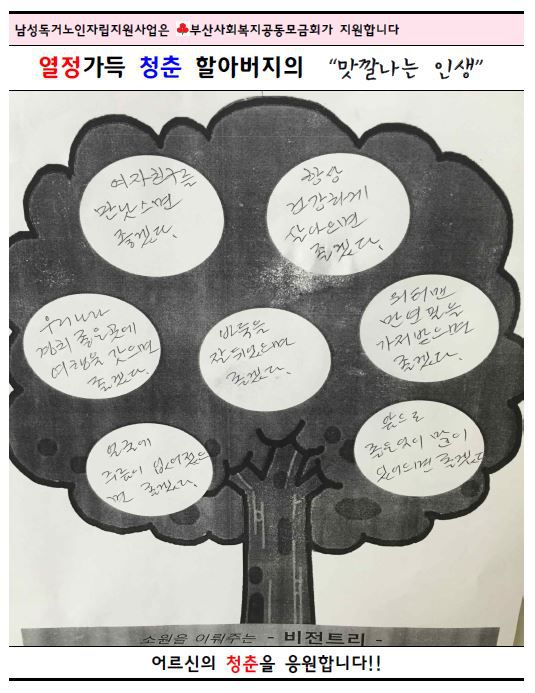 남성독거노인자립지원사업은 부산사회복지공동모금회가 지원합니다
열정가득 청춘 할아버지의 “맛깔나는 인생”
여자친구를
만낫스면
좋겠다.
항상
건강하게
살다으면
좋겠다.
우리나라
경치 좋은곳에
여행을 갔으면
좋겠다.
바둑을
잘 뒤었으면
좋겠다.
워터맨
만년필을
가저받으면
좋겠다.
얼굴에
주름이 없어졌으
면 좋겠다.
앞으로
좋은일이 많이
있어드면 좋겠다
소원을 이뤄주는 - 비전트리 -
어르신의 청춘을 응원합니다!!